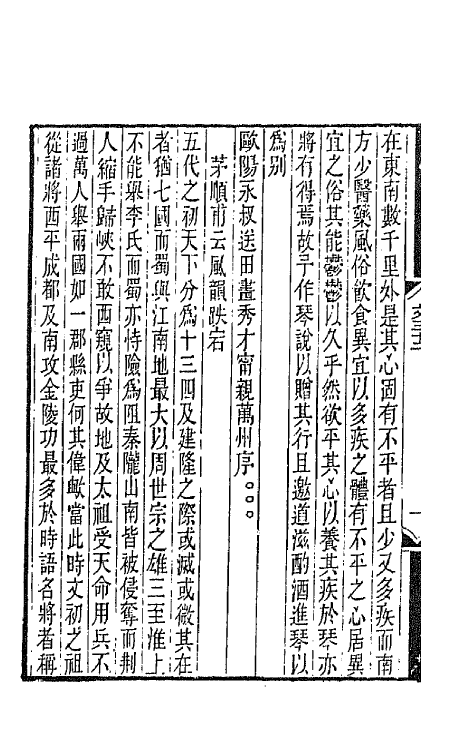 在東南數千里外是其心固有不平者且少又多疾而南
方少醫藥風俗飲食異宜以多疾之體有不平之心居異
宜之俗其能鬱鬱以久乎然欲平其心以養其疾於琴亦
將有得焉故予作琴說以贈其行且邀道滋酌酒進琴以
爲别
歐陽永叔送田畫秀才甯親萬州序○○○
茅順甫云風韻跌宕
五代之初天下分爲十三四及建隆之際或滅或微其在
者猶七國而蜀與江南地最大以周世宗之雄三至淮上
不能舉李氏而蜀亦恃險爲阻秦隴山南皆被侵奪而荆
人縮手歸峽不敢西窺以爭故地及太祖受天命用兵不
過萬人舉兩國如一郡縣吏何其偉歟當此時文初之祖
從諸將西平成都及南攻金陵功最多於時語名將者稱